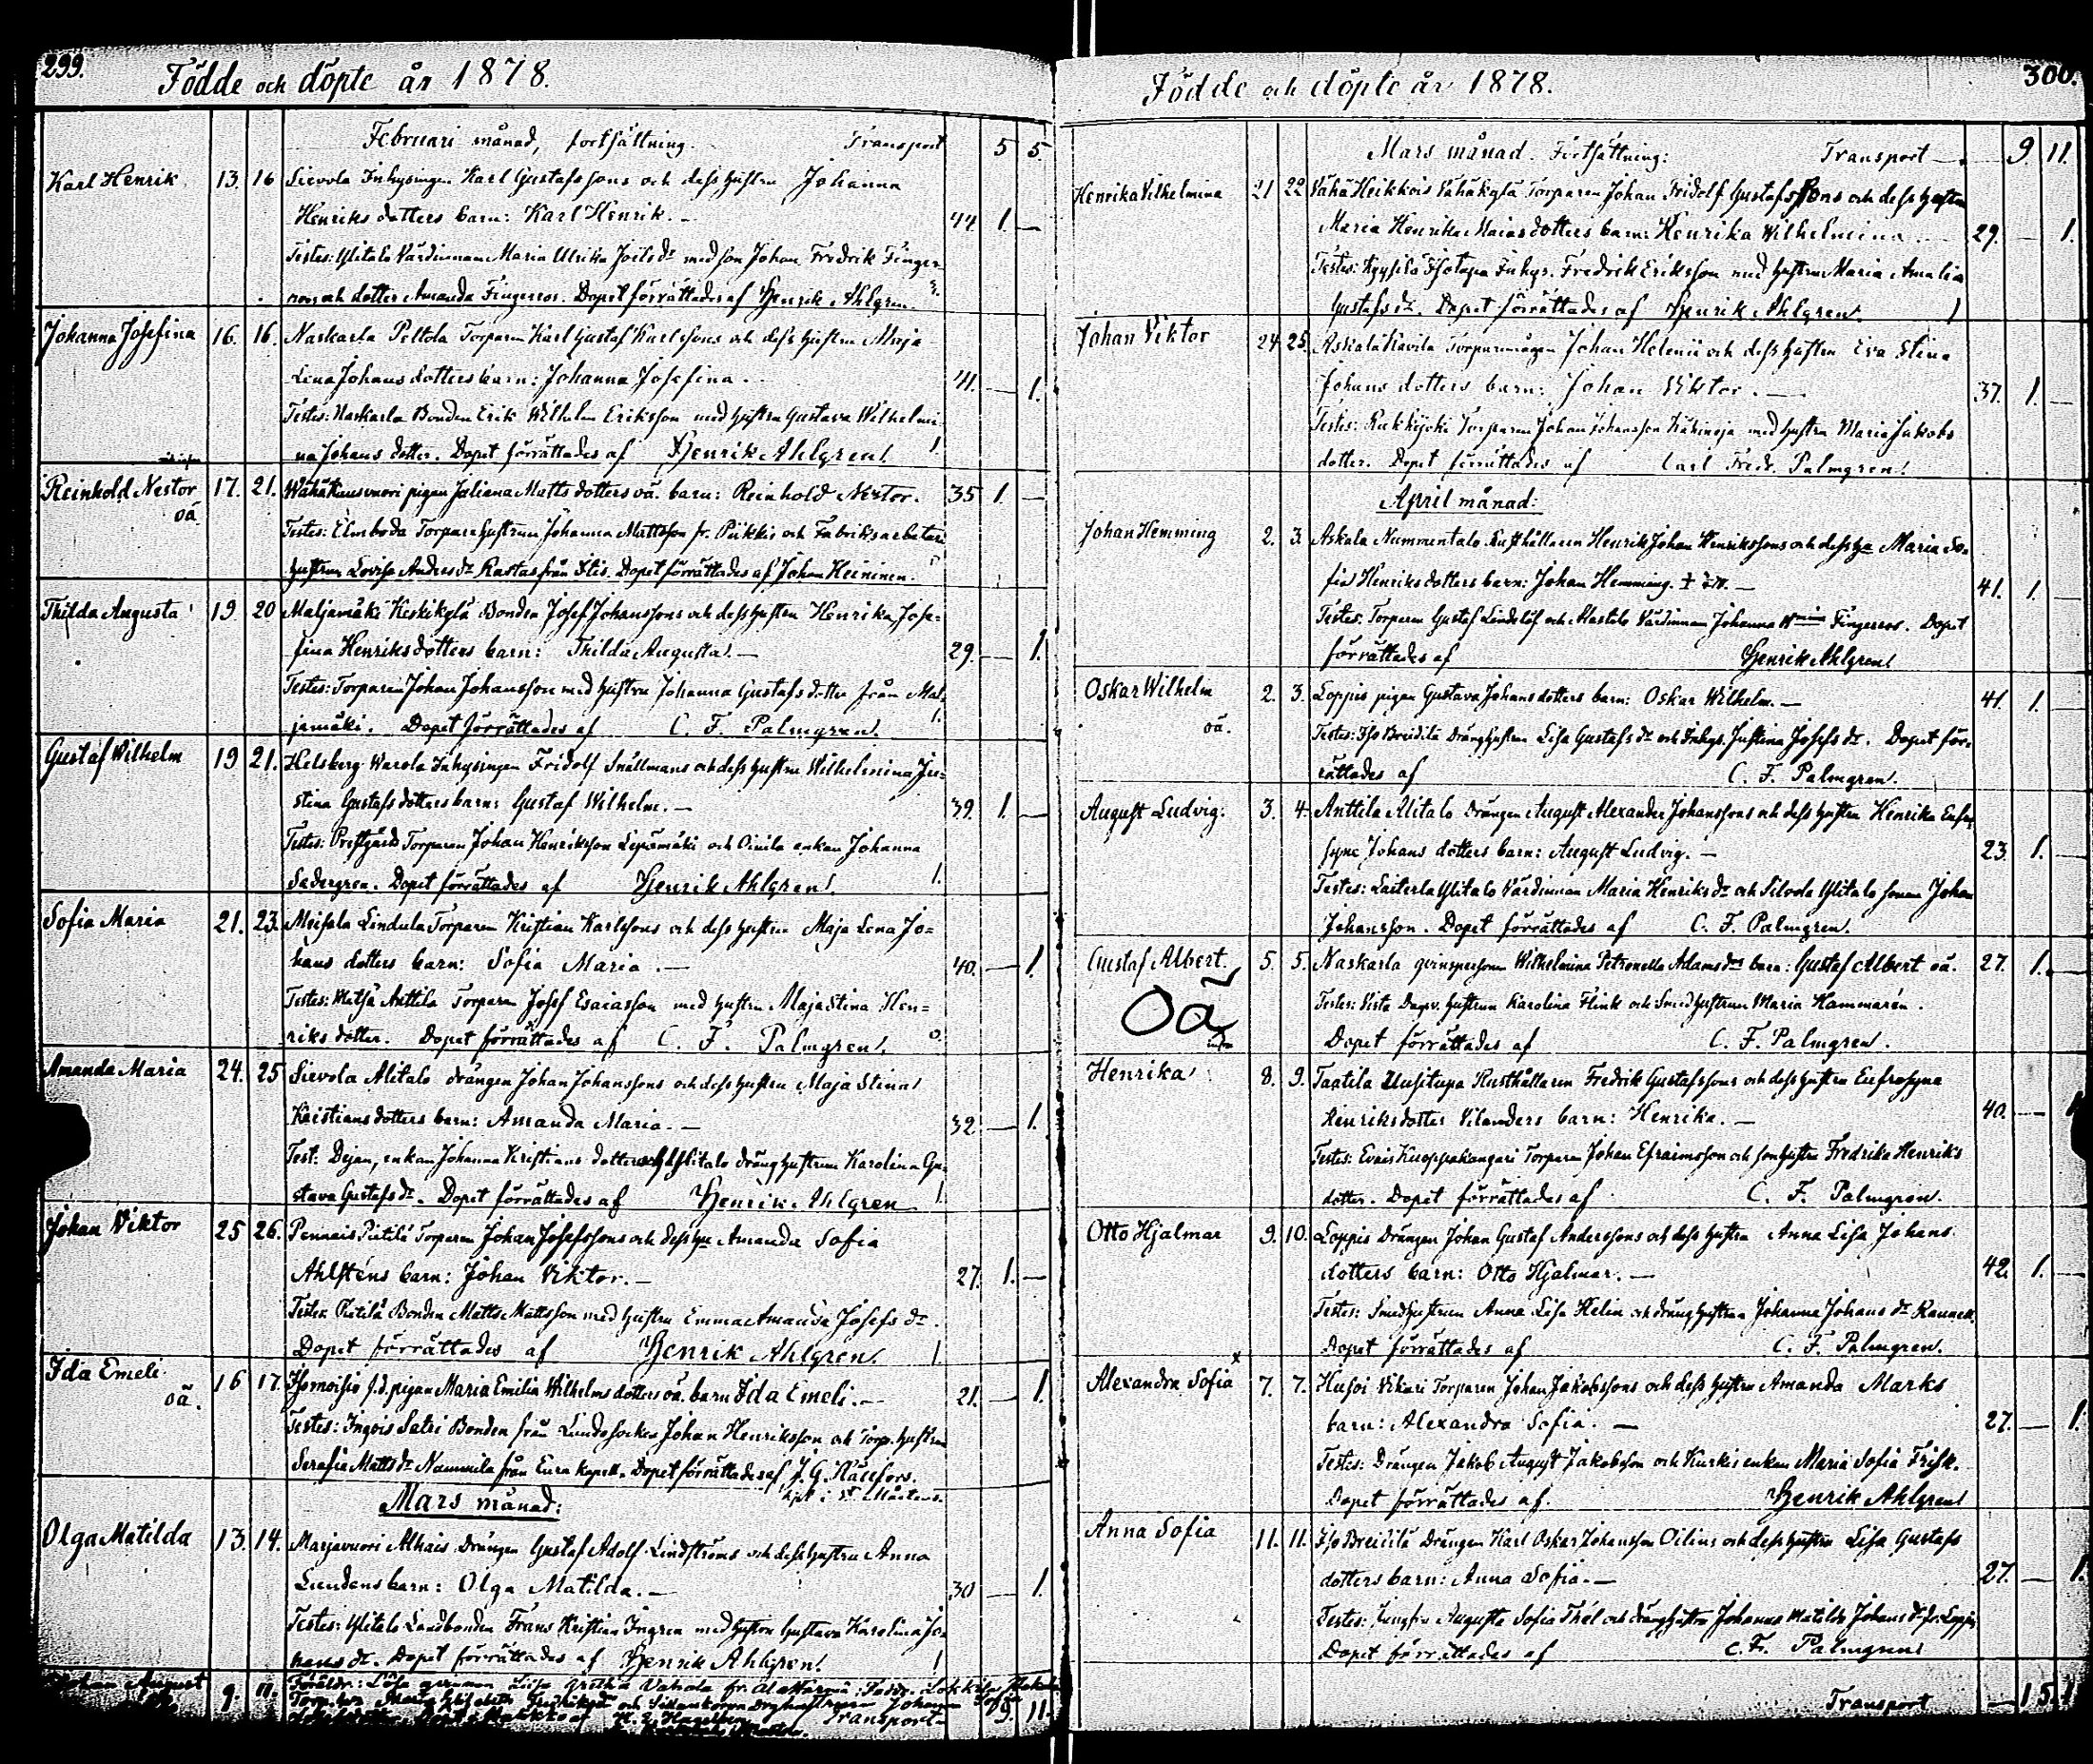 299.
Födde och döpte år 1878.
Februari månad, fortsättning. Transport 5 5.
Karl Henrik 13. 16 Sievola Inhysingen Karl Gustafssons och dess hustru Johanna
Henriks dotters barn: Karl Henrik. — 44. 1. —
Testes: Ylitalo Värdinnan Maria Ulrika Joels dr med son Johan Fredrik Finger-
roos och dotter Amanda Fingerroos. Dopet förrättades af Henrik Ahlgren.
Johanna Josefina 16. 16. Naskarla Peltola Torparen Karl Gustaf Karlssons och dess hustru Maja
Lena Johans dotters barn: Johanna Josefina. 41. — 1.
Testes: Naskarla Bonden Erik Wilhelm Eriksson med hustru Gustava Wilhelmi-
na Johans dotter. Dopet förrättades af Henrik Ahlgren. 1
Reinhold Nestor 17. 21. pigan Juliana Matts dotters oä. barn: Reinhold Nestor. 35 1. —
oä.
Testes: Elmboda Torparehustrun Johanna Mattsson fr. Piikkis och Fabriksarbetare
hustrun Lovisa Anders dr Rastas från Itis. Dopet förrättades af Johan Heininen.
Thilda Augusta 19 20 Maljamäki Keskikylä Bonden Josef Johanssons och dess hustru Henrika Jose-
fina Henriks dotters barn: Thilda Augusta. — 29. — 1.
Testes: Torparen Johan Johansson med hustru Johanna Gustafs dotter från Mal-
jamäki. Dopet förrättades af C. F. Palmgren. 1.
Gustaf Wilhelm 19 21. Helsberg Warola Inhysingen Fridolf Snällmans och dess hustru Wilhelmina Ju-
stina Gustafs dotters barn: Gustaf Wilhelm. — 39. 1. —
Testes: Prestgårds Torparen Johan Henriksson Lepämäki och Oinila enkan Johanna
Sedergren. Dopet förrättades af Henrik Ahlgren. 1.
Sofia Maria 21. 23. Moisala Lindula Torparen Kristian Karlssons och dess hustru Maja Lena Jo-
hans dotters barn: Sofia Maria. — 40. — 1.
Testes: Metsä Anttila Torparen Josef Esaiasson med hustru Maja Stina Hen-
riks dotter. Dopet förrättades af C. F. Palmgren.
Amanda Maria 24. 25 Sievola Alitalo drängen Johan Johanssons och dess hustru Maja Stina
Kristians dotters barn: Amanda Maria. — 32. — 1.
Test: Dejan, enkan Johanna Kristians dotter och Ylitalo dräng hustrun Karolina Gu-
stava Gustafs dr. Dopet förrättades af Henrik Ahlgren 1.
Johan Viktor 25 26. Pennais Pietilä Torparen Johan Josefssons och dess hu Amanda Sofia
Ahlsténs barn: Johan Viktor. — 27. 1. —
Testes: Pietilä Bonden Matts Mattsson med hustru Emma Amanda Josefs dr.
Dopet förrättades af Henrik Ahlgren. 1.
Ida Emeli 16 17. Isomoisio pigan Maria Emilia Wilhelms dotters oä. barn Ida Emeli. — 21. — 1.
oä.
Testes: Ingois Satri Bonden från Lundo socken Johan Henriksson och Torp. hustrun
Serafia Matts dr Nummila från Eura kapell. Dopet förrättades af J. G. Ränfors.
kpl. i St Mårtens.
Mars månad:
Olga Matilda 13. 14. Marjavuori Alhais Drängen Gustaf Adolf Lindströms och dess hustru Anna
Lundens barn: Olga Matilda. — 30 — 1.
Testes: Ylitalo Landbonden Frans Kristian Ingren med hustru Gustava Karolina Jo-
hans dr. Dopet förrättades af Henrik Ahlgren. 1
Johan August 9. 11. Föräldr.: Lösa qvinnan Lisa Gretha Vahola fr. Alastaro
Transport 9. 11.
300.
Födde och döpte år 1878.
Mars månad. Fortsättning: Transport — 9 11.
Henrika Vilhelmina 21 22 Vähä Heikkois Vähäkylä Torparen Johan Fridolf Gustafssons och dess hustru
Maria Henrika Maias dotters barn: Henrika Wilhelmina — 29. — 1.
Testes: Isotupa Inhys. Fredrik Eriksson med hustru Maria Amalia
Gustafs dr. Dopet förrättades af Henrik Ahlgren. 1
Johan Viktor 24 25. Askala Kavila Torparemågen Johan Helenii och dess hustru Eva Stina
Johans dotters barn: Johan Viktor. — 37. 1. —
Testes: Rukkijoki Torparen Johan Johansson med hustru Maria Jakobs
dotter. Dopet förrättades af Carl Fredr. Palmgren.
April månad:
Johan Hemming 2. 3. Askala Nummentalo Rusthållaren Henrik Johan Henrikssons och dess hu Maria So-
fia Henriks dotters barn: Johan Hemming. — 41. 1. —
Testes: Torparen Gustaf Lindelöf och Mastilo Värdinnan Johanna Wmina Fingerroos. Dopet
förrättades af Henrik Ahlgren.
Oskar Wilhelm 2. 3. Loppis pigan Gustava Johans dotters barn: Oskar Wilhelm. — 41. 1. —
oä.
Testes: Iso Breidilä Dränghustrun Lisa Gustafs dr och Inhys. Justina Josefs dr. Dopet för-
rättades af C. F. Palmgren.
August Ludvig: 3. 4. Anttila Alitalo Drängen August Alexander Johanssons och dess hustru Henrika Eufro-
syne Johans dotters barn: August Ludvig. — 23. 1. —
Testes: Laiterla Ylitalo Värdinnan Maria Henriks dr och Silvola Ylitalo sonen Johan
Johansson. Dopet förrättades af C. F. Palmgren.
Gustaf Albert. 5. 5. Naskarla qvinspersonen Wilhelmina Petronella Adams drs barn: Gustaf Albert oä. 27. 1. —
Oä
Testes: Sista Dagsv. hustrun Karolina Flink och Smedhustrun Maria Hammarén.
Dopet förrättades af C. F. Palmgren.
Henrika 8. 9. Taatila Uusitupa Rusthållaren Fredrik Gustafssons och dess hustru Eufrosyne
Henriks dotter Vilanders barn: Henrika. — 40. — 1
Testes: Evais Kuoppakangari Torparen Johan Efraimsson och sonhustru Fredrika Henriks
dotter. Dopet förrättades af C. F. Palmgren.
Otto Hjalmar 9. 10. Loppis Drängen Johan Gustaf Anderssons och dess hustru Anna Lisa Johans
dotters barn: Otto Hjalmar. — 42. 1. —
Testes: Smedhustrun Anna Lisa Helin och dränghustrun Johanna Johans dr
Dopet förrättades af C. F. Palmgren.
Alexandra Sofia x 7. 7. Huhoi Vikari Torparen Johan Jakobssons och dess hustru Amanda Marks
barn: Alexandra Sofia. — 27. — 1.
Testes: Drängen Jakob August Jakobsson och Kurkis enkan Maria Sofia Frisk.
Dopet förrättades af. Henrik Ahlgren
Anna Sofia 11. 11. Iso Breidilä Drängen Karl Oskar Johansson Oilins och dess hustru Lisa Gustafs
dotters barn: Anna Sofia. — 27. — 1.
Testes: Jungfru Augusta Sofia Thél och dränghustru Johanna Matilda Johans dr fr. Loppis
Dopet förrättades af C. F. Palmgren
Transport — 15. 1